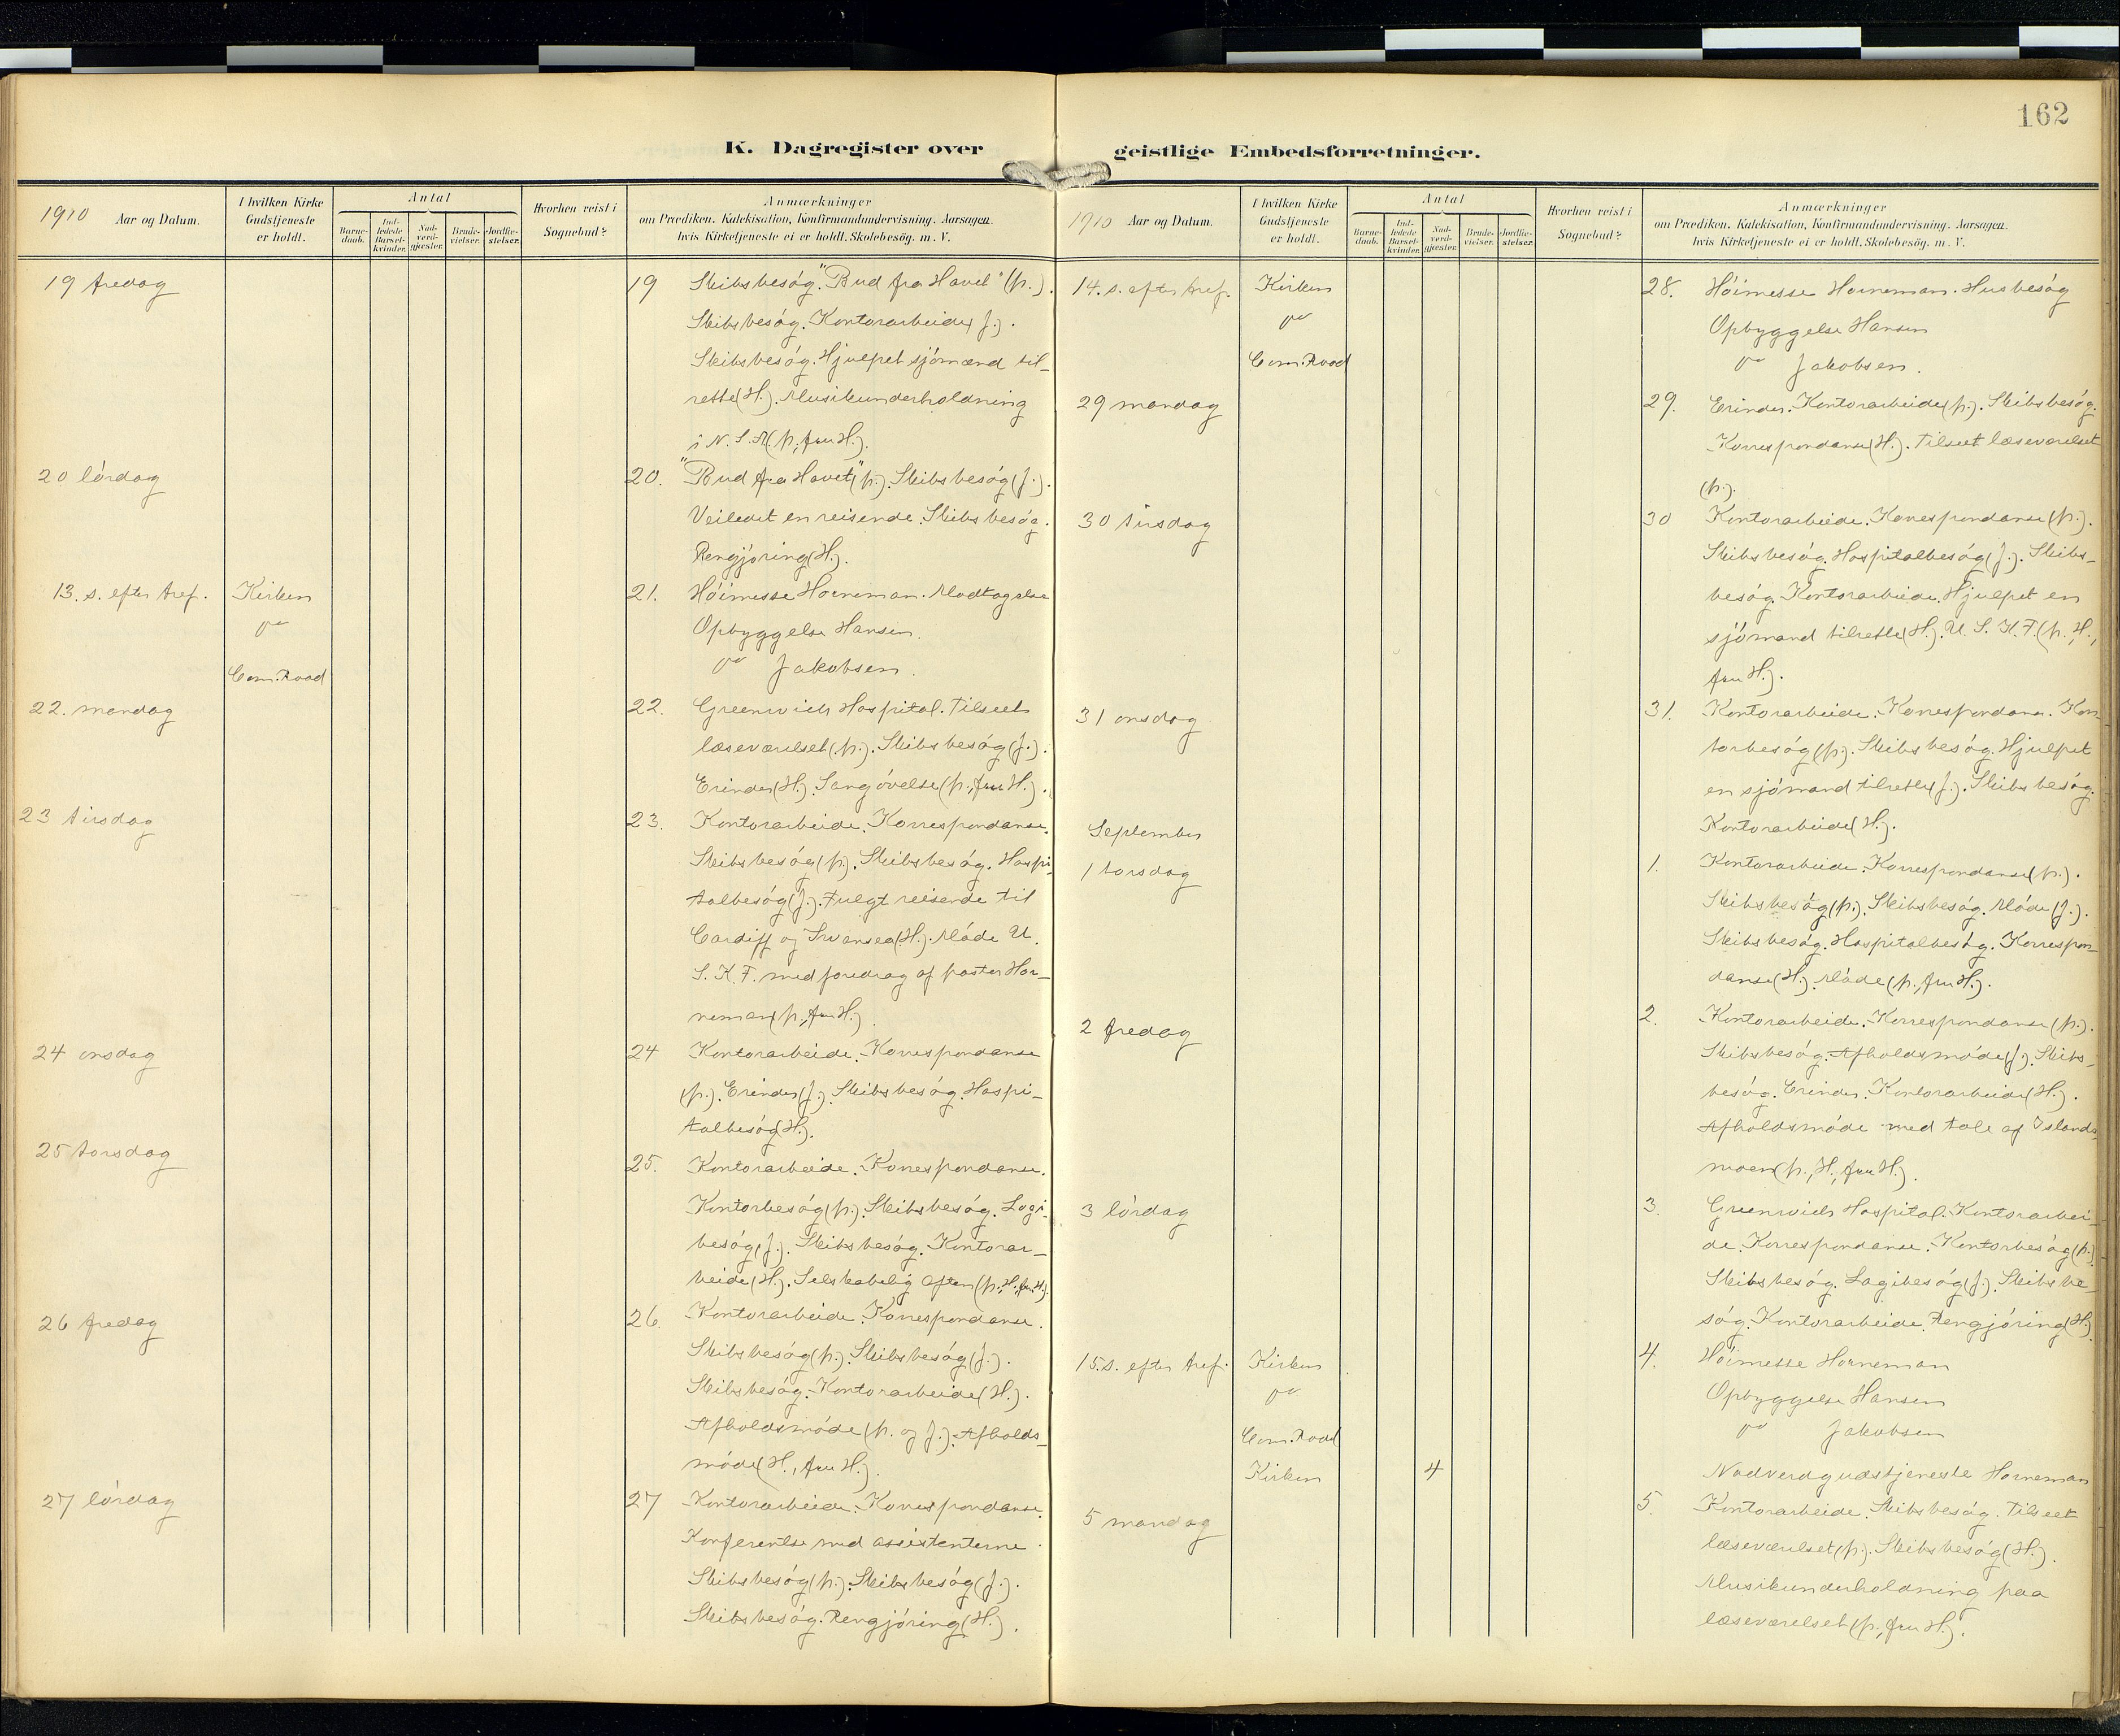 162
K. Dagregister over
1910 Aar og Datum.
I hvilken Kirke Gudstjeneste er holdt.
Antal
Barnedaab.
Indledede Barselkvinder.
Nadverdgjæster.
Brudevielser.
Jordfæstelser.
Hvorhen reist i Sognebud?
Anmærkninger
om Prædiken, Katekisation, Konfirmandundervisning, Aarsagen
hvis Kirketjeneste ei er holdt, Skolebesøg, m. V.
19 fredag
19 Skibsbesøg. "Bud fra Havet" (p.).
Skibsbesøg. Kontorarbeide (J.).
Skibsbesøg. Hjulpet sjømænd til-
rette (H.). Musikunderholdning
i N. S. R. (p., fru H.).
20 lørdag
20. "Bud fra Havet" (p.). Skibsbesøg (J.).
Veiledet en reisende. Skibsbesøg.
Rengjøring (H.).
13. s. efter tref. Kirken
21. Høimesse Horneman. Modtagelse
do
Opbyggelse Hansen.
Com. Road
do Jakobsen.
22. mandag
22. Greenwich Hospital. Tilseet
læseværelset (p.). Skibsbesøg (J.).
Erinder (H.). Sangøvelse (p., fru H.).
23 tirsdag
23. Kontorarbeide. Korrespondanse.
Skibsbesøg (p.). Skibsbesøg. Hospi-
talbesøg (J.). Fulgt reisende til
Cardiff og Swansea (H.). Møde U.
S. K. F. med foredrag af pastor Hor-
neman (p., fru H.)
24 onsdag
24 Kontorarbeide. Korrespondanse
(p.). Erinder (J.). Skibsbesøg. Hospi-
talbesøg (H.).
25 torsdag
25. Kontorarbeide. Korrespondanse.
Kontorbesøg (p.). Skibsbesøg. Logi-
besøg (J.). Skibsbesøg. Kontorar-
beide (H.). Selskabelig aften (p., H., fru H.).
26 fredag
26. Kontorarbeide. Korrespondanse.
Skibsbesøg (p.). Skibsbesøg (J.).
Skibsbesøg. Kontorarbeide (H.).
Afholdsmøde (p. og J.). Afholds-
møde (H., fru H.).
27 lørdag
27 Kontorarbeide. Korrespondanse.
Konferentse med assistenterne.
Skibsbesøg (p.). Skibsbesøg (J.).
Skibsbesøg. Rengjøring (H.).
geistlige Embedsforretninger.
1910 Aar og Datum.
I hvilken Kirke Gudstjeneste er holdt.
Antal
Barnedaab.
Indledede Barselkvinder.
Nadverdgjæster.
Brudevielser.
Jordfæstelser.
Hvorhen reist i Sognebud?
Anmærkninger
om Prædiken, Katekisation, Konfirmandundervisning, Aarsagen
hvis Kirketjeneste ei er holdt, Skolebesøg, m. V.
14. s. efter tref. Kirken
28. Høimesse Horneman. Husbesøg
do
Opbyggelse Hansen
Com. Road
do Jakobsen.
29 mandag
29. Erinder. Kontorarbeide (p.). Skibsbesøg.
Korrespondanse (H.). Tilseet læseværelset
(p.).
30 tirsdag
30 Kontorarbeide. Korrespondanse (p.).
Skibsbesøg. Hospitalbesøg (J.). Skibs-
besøg. Kontorarbeide. Hjulpet en
sjømand tilrette (H.). U. S. K. F. (p., H.,
fru H.).
31 onsdag
31. Kontorarbeide. Korrespondanse. Kon-
torbesøg (p.). Skibsbesøg. Hjulpet
en sjømand tilrette (J.). Skibsbesøg.
Kontorarbeide (H.).
September
1 torsdag
1. Kontorarbeide. Korrespondanse (p.).
Skibsbesøg (p.). Skibsbesøg. Møde (J.).
Skibsbesøg. Hospitalbesøg. Korrespon-
danse (H.). Møde (p., fru H.).
2 fredag
2. Kontorarbeide. Korrespondanse (p.).
Skibsbesøg. Afholdsmøde (J.). Skibs-
besøg. Erinder. Kontorarbeide (H.).
Afholdsmøde med tale af Islands-
moen (p., H., fru H.).
3 lørdag
3. Greenwich Hospital. Kontorarbei-
de. Korrespondanse. Kontorbesøg (p.)
Skibsbesøg. Logibesøg (J.). Skibsbe-
søg. Kontorarbeide. Rengjøring (H.).
15. s. efter tref. Kirken
4. Høimesse Horneman
do
Opbyggelse Hansen
Com. Road
do Jakobsen
Kirken 4
Nadverdgudstjeneste Horneman
5 mandag
5. Kontorarbeide. Skibsbesøg. Tilseet
læseværelset (p.). Skibsbesøg (H.).
Musikunderholdning paa
læseværelset (p., fru H.).